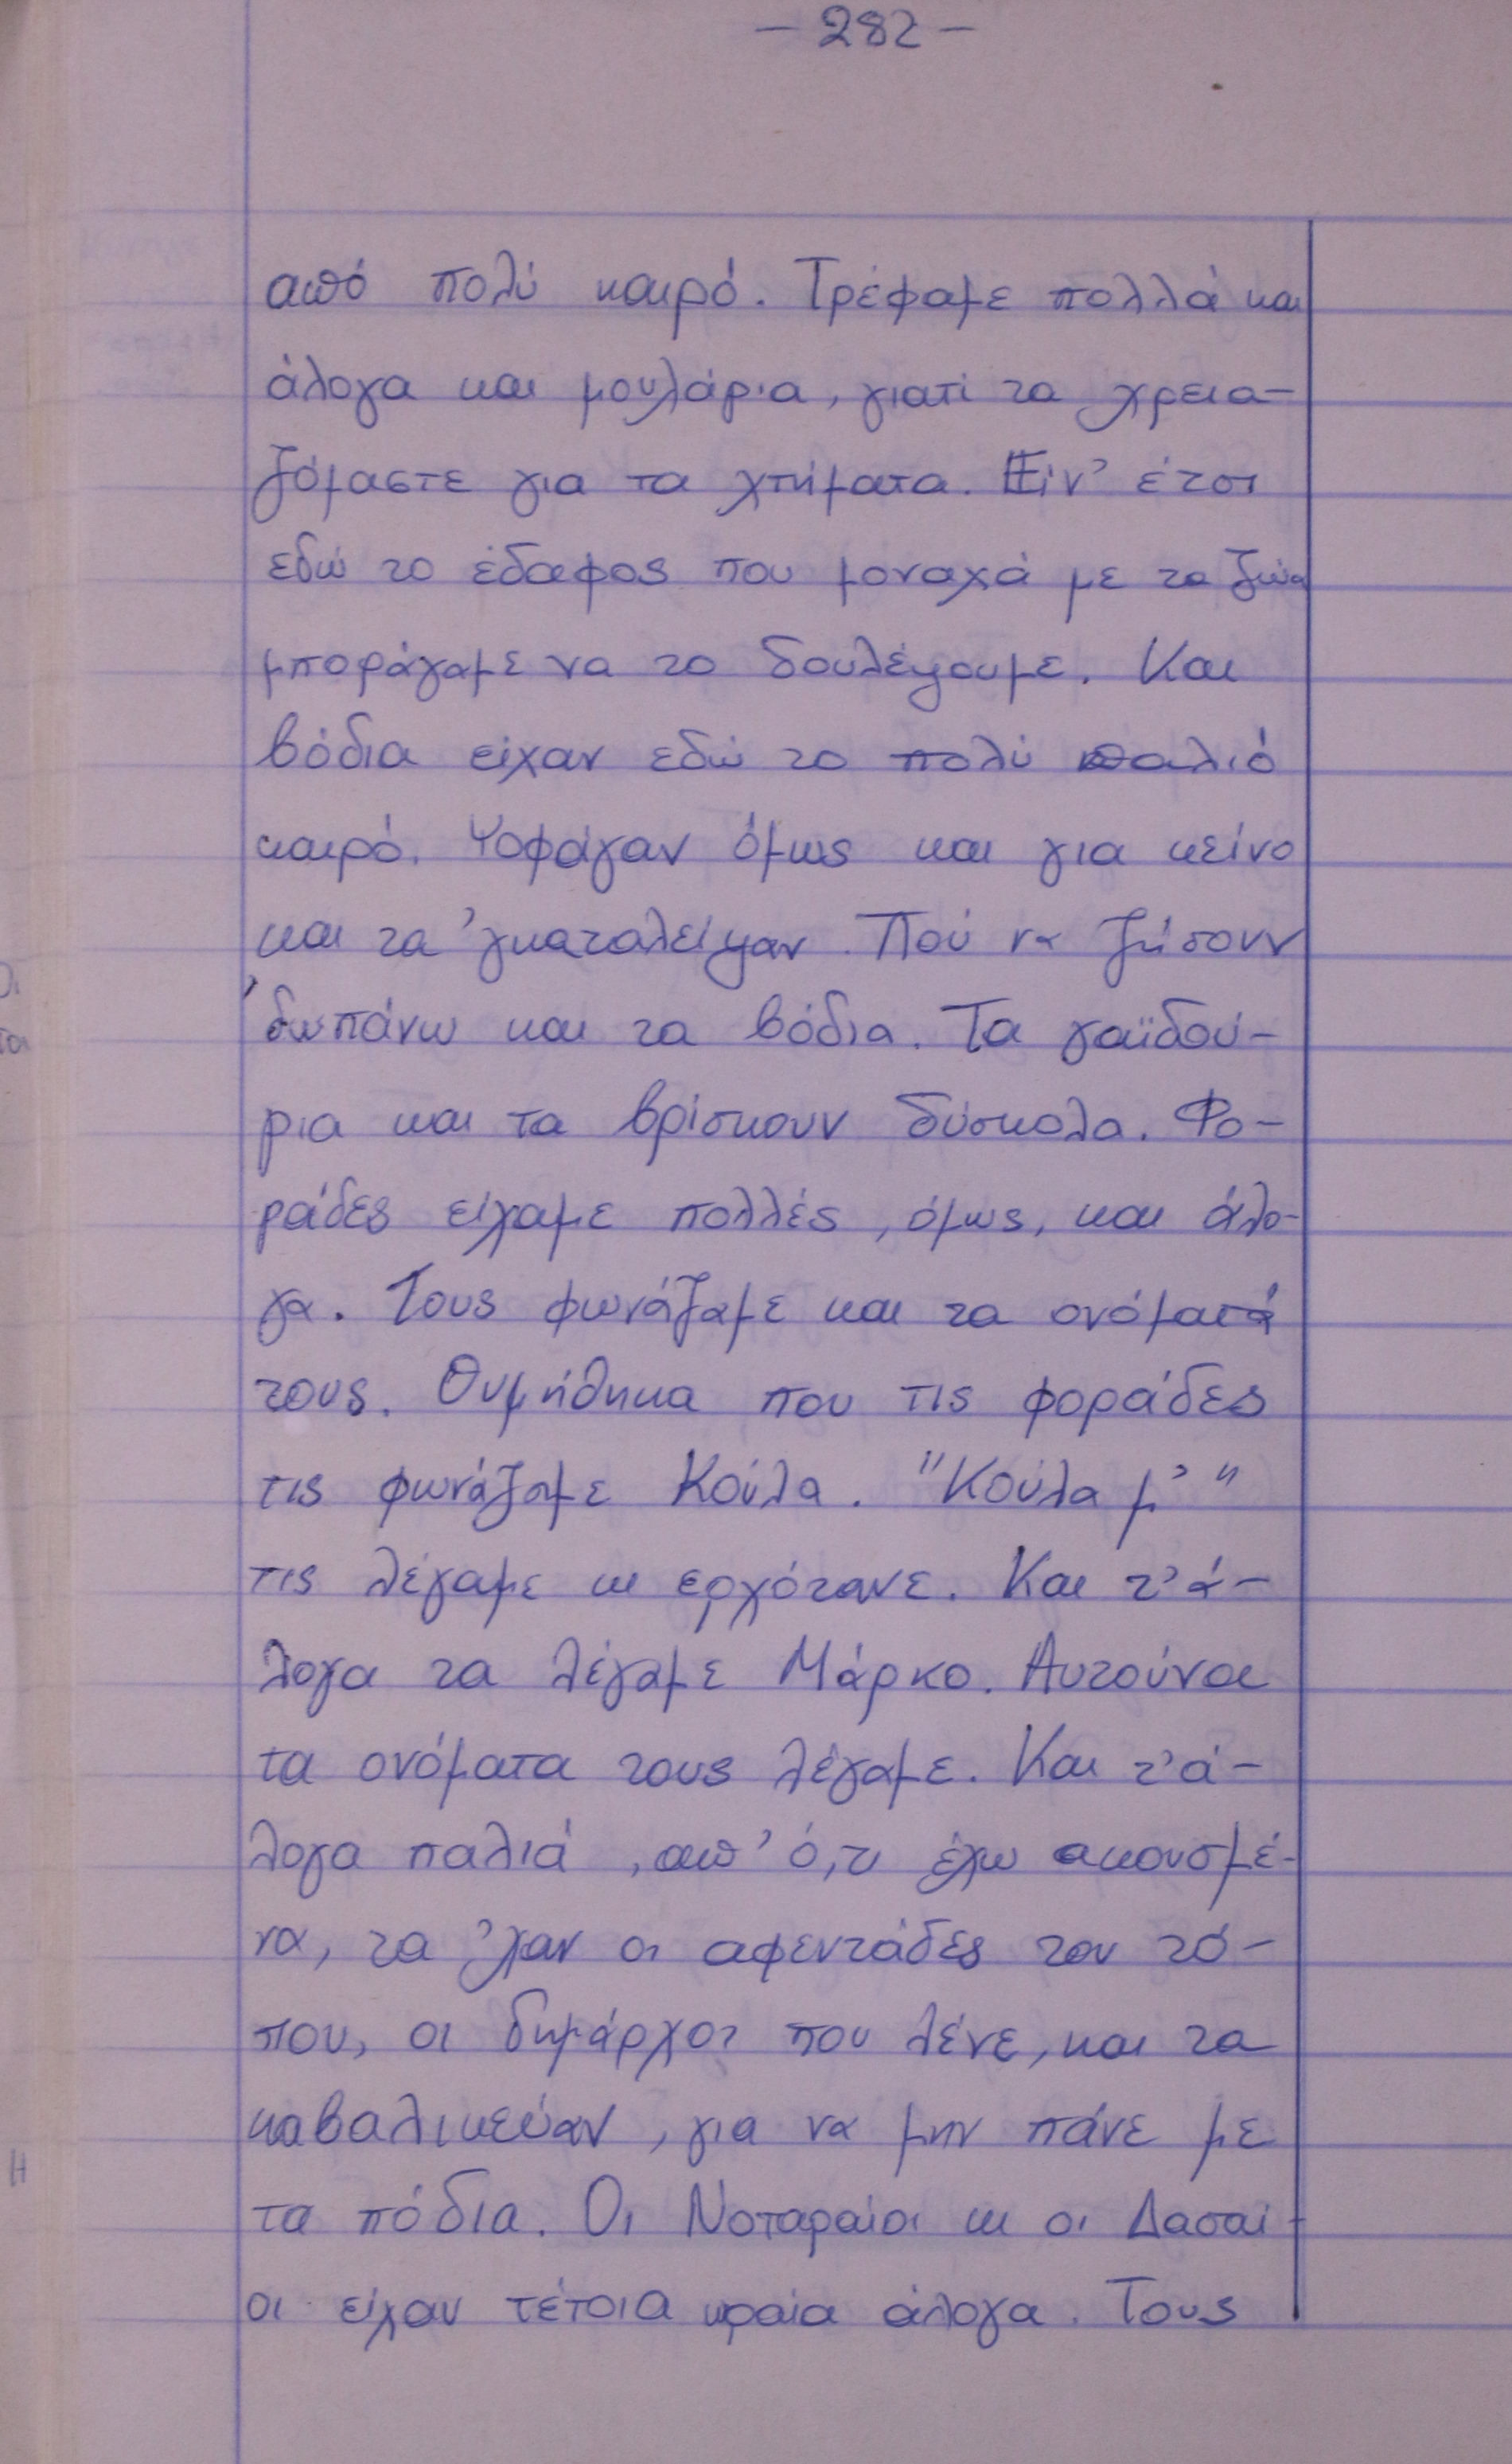 - 282 -
από πολύ καιρό. Τρέφαμε πολλά και
άλογα και μουλάρια, γιατί τα χρεια-
ζόμαστε για τα χτήματα. Είν' έτσι
εδώ το έδαφος που μοναχά με τα ζώα
μποράγαμε να το δουλέψουμε. Και
βόδια είχαν εδώ το πολύ παλιό
καιρό. Ψοφάγαν όμως και για κείνο
και τα 'γκαταλείψαν. Πού να ζήσουν
'δωπάνω και τα βόδια. Τα γαϊδού-
ρια και τα βρίσκουν δύσκολα. Φο-
ράδες είχαμε πολλές, όμως, και άλο-
γα. Τους φωνάζαμε και τα ονόματά
τους. Θυμήθηκα που τις φοράδες
τις φωνάζαμε Κούλα. "Κούλα μ'"
τις λέγαμε κι ερχότανε. Και τ' ά-
λογα τα λέγαμε Μάρκο. Αυτούνα
τα ονόματα τους λέγαμε. Και τ' ά-
λογα παλιά, απ' ό,τι έχω ακουσμέ-
να, τα 'χαν οι αφεντάδες του τό-
που, οι δημάρχοι που λένε, και τα
καβαλικεύαν, για να μην πάνε με
τα πόδια. Οι Νοταραίοι κι οι Δασαί-
οι είχαν τέτοια ωραία άλογα. Τους